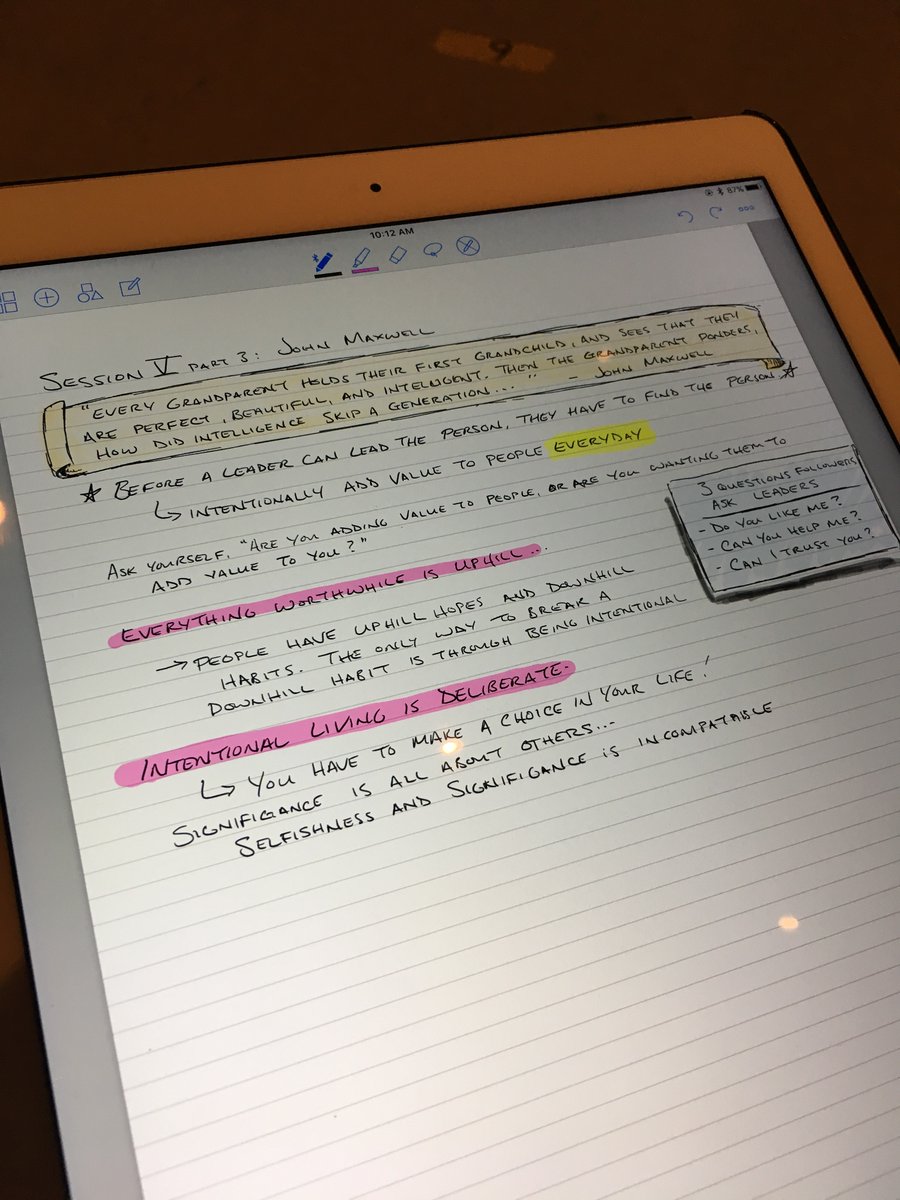 10:12 AM
87%
SESSION V PART 3: JOHN MAXWELL
"EVERY GRANDPARENT HOLDS THEIR FIRST GRANDCHILD, AND SEES THAT THEY
ARE PERFECT, BEAUTIFUL, AND INTELLIGENT. THEN THE GRANDPARENT PONDERS,
HOW DID INTELLIGENCE SKIP A GENERATION..." - JOHN MAXWELL
★ BEFORE A LEADER CAN LEAD THE PERSON, THEY HAVE TO FIND THE PERSON ★
↳ INTENTIONALLY ADD VALUE TO PEOPLE EVERYDAY
ASK YOURSELF, "ARE YOU ADDING VALUE TO PEOPLE, OR ARE YOU WANTING THEM TO
ADD VALUE TO YOU?"
3 QUESTIONS FOLLOWERS
ASK LEADERS
- DO YOU LIKE ME?
- CAN YOU HELP ME?
- CAN I TRUST YOU?
EVERYTHING WORTHWHILE IS UPHILL...
→ PEOPLE HAVE UPHILL HOPES AND DOWNHILL
HABITS. THE ONLY WAY TO BREAK A
DOWNHILL HABIT IS THROUGH BEING INTENTIONAL
INTENTIONAL LIVING IS DELIBERATE.
↳ YOU HAVE TO MAKE A CHOICE IN YOUR LIFE!
SIGNIFIGANCE IS ALL ABOUT OTHERS...
SELFISHNESS AND SIGNIFIGANCE IS INCOMPATABLE